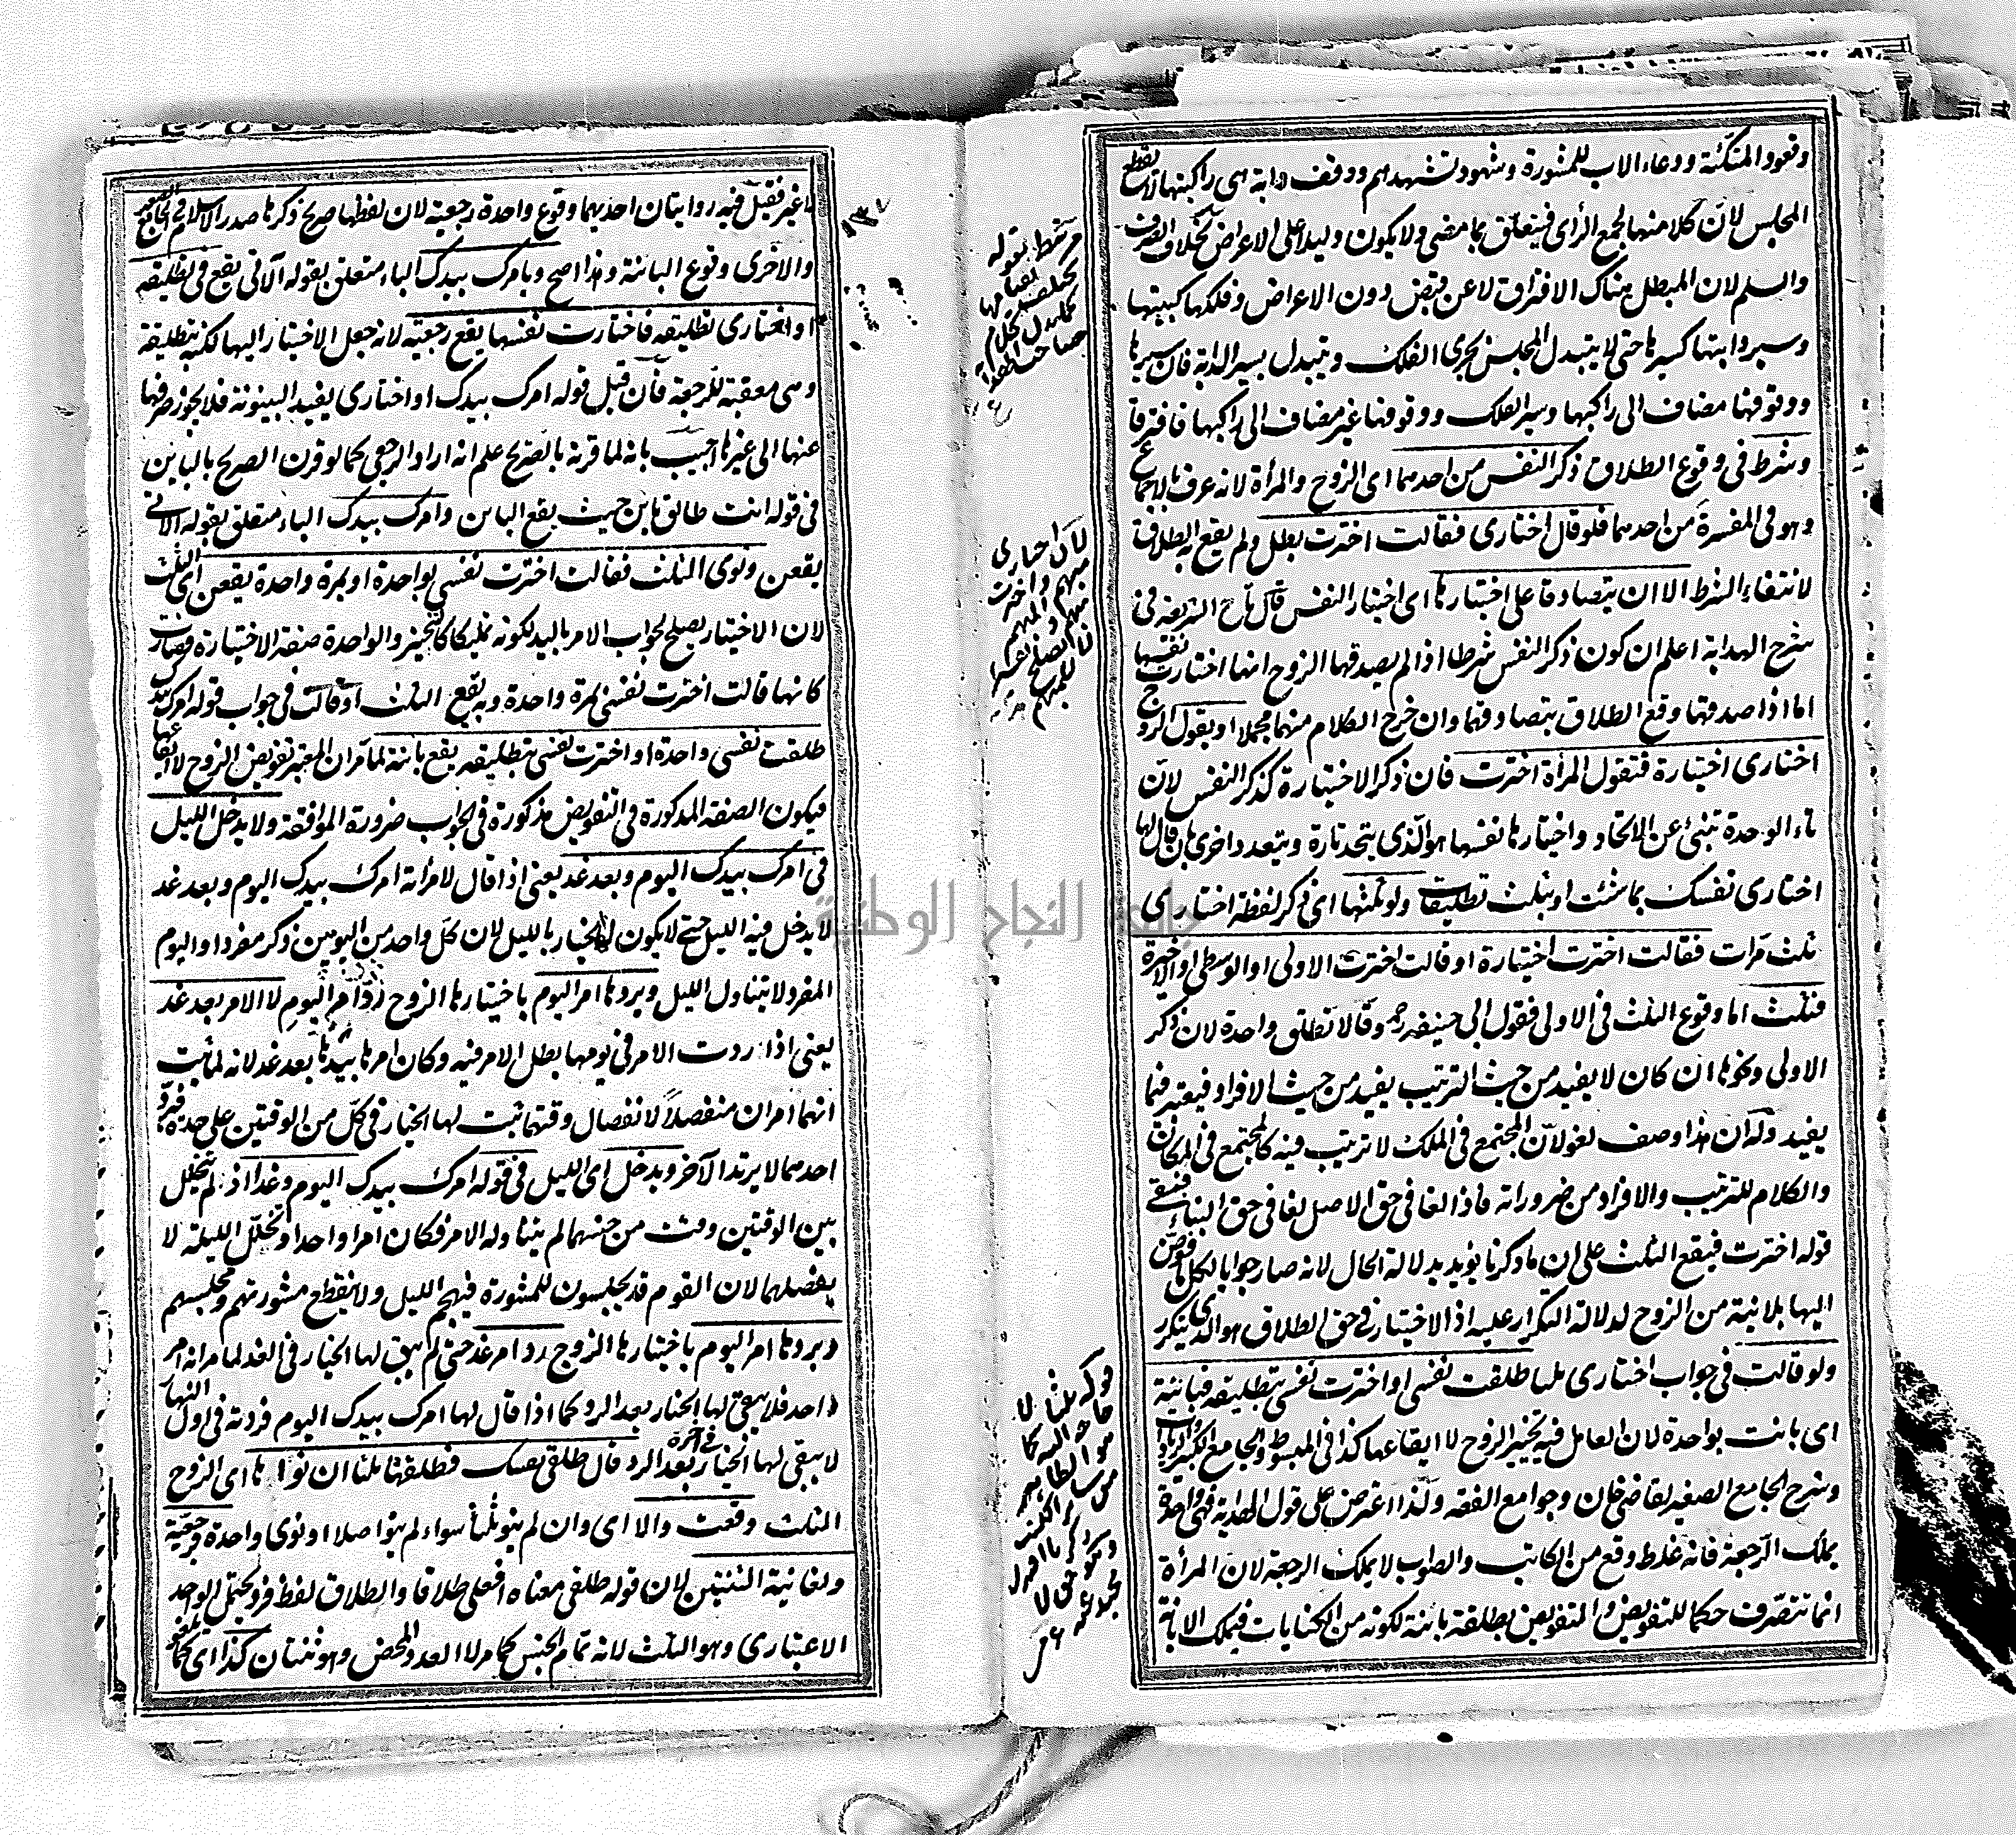 وقعود المتكئة ودعاء الاب للمشورة وشهود تشهدهم ووقف دابة هى راكبتها لا يقطع
المجلس لان كلا منها لجمع الرأى فيتعلق بما مضى ولا يكون دليلا على الاعراض بخلاف الصرف
والسلم لان المبطل هناك الافتراق لا عن قبض دون الاعراض وفلكها كبيتها
وسير دابتها كسيرها حتى لا يتبدل المجلس بجرى الفلك ويتبدل بسير الدابة فان سيرها
ووقوفها مضاف الى راكبها وسير الفلك ووقوفها غير مضاف الى راكبها فافترقا
وشرط فى وقوع الطلاق ذكر النفس من احدهما اى الزوج والمرأة لانه عرف بالاجماع
وهو فى المفسرة من احدهما فلو قال اختارى فقالت اخترت بطل ولم يقع به الطلاق
لانتفاء الشرط الا ان يتصادقا على اختيارها اى اختيار النفس قال تاج الشريعة فى
شرح الهداية اعلم ان كون ذكر النفس شرطا اذا لم يصدقها الزوج انها اختارت نفسها
اما اذا صدقها وقع الطلاق بتصادقهما وان خرج الكلام منهما مجملا او بقول الزوج
اختارى اختيارة فتقول المرأة اخترت فان ذكر الاختيارة كذكر النفس لان
تاء الوحدة تنبئ عن الاتحاد واختيارها نفسها هو الذى يتحد تارة ويتعدد اخرى بان قال لها
اختارى نفسك بما شئت او بثلث تطليقات ولو ثلثها اى ذكر لفظة اختارى
ثلث مرات فقالت اخترت اختيارة او قالت اخترت الاولى او الوسطى او الاخيرة
فثلث اما وقوع الثلث فى الاولى فقول ابى حنيفه رح وقالا تطلق واحدة لان ذكر
الاولى ونحوها ان كان لا يفيد من حيث الترتيب يفيد من حيث الافراد فيعتبر فيما
يفيد وله ان هذا وصف لغو لان المجتمع فى الملك لا ترتيب فيه كالمجتمع فى المكان
والكلام للترتيب والافراد من ضروراته فاذا لغا فى حق الاصل لغا فى حق البناء فبقى
قوله اخترت فيقع الثلث على ان ما ذكرنا يؤيد بدلالة الحال لانه صار جوابا لكل ما فوض
اليها بلا نية من الزوج لدلالة التكرار عليه اذ الاختيار فى حق الطلاق هو الذى يتكرر
ولو قالت فى جواب اختارى ثلثا طلقت نفسى او اخترت نفسى بتطليقه فبائنة
اى بانت بواحدة لان العامل فيه تخيير الزوج لا ايقاعها كذا فى المبسوط والجامع الكبير
وشرح الجامع الصغير لقاضى خان وجوامع الفقه ولذا اعترض على قول الهداية فهى واحدة
يملك الرجعة فانه غلط وقع من الكاتب والصواب لا يملك الرجعة لان المرأة
انما تتصرف حكما للتفويض والتفويض بطلقة بائنة لكونه من الكنايات فيملك الابانة
لا غير فقيل فيه روايتان احديهما وقوع واحدة رجعية لان لفظها صريح ذكرها صدر الاسلام فى الجامع الصغير
والاخرى وقوع البائنة وهذا اصح وبامرك بيدك الباء متعلق بقوله الآتى يقع فى تطليقه
او اختارى تطليقه فاختارت نفسها يقع رجعية لانه جعل الاختيار اليها لكنه بتطليقة
وهى معقبة للرجعة فان قيل قوله امرك بيدك او اختارى يفيد البينونة فلا يجوز صرفها
عنها الى غيرها اجيب بانه لما قرنه بالصريح علم انه اراد الرجعى كما لو قرن الصريح بالباين
فى قوله انت طالق باين حيث يقع الباين وامرك بيدك الباء متعلق بقوله الآتى
يقعن ونوى الثلث فقالت اخترت نفسى بواحدة او بمرة واحدة يقعن اى الثلث
لان الاختيار يصلح لجواب الامر باليد لكونه تمليكا كالتخيير والواحدة صفة الاختيارة فصارت
كانها قالت اخترت نفسى بمرة واحدة وبه يقع الثلث او قالت فى جواب قوله امرك بيدك
طلقت نفسى واحدة او اخترت نفسى بتطليقه يقع بائنة لما مر ان المعتبر تفويض الزوج لا ايقاعها
فيكون الصفة المذكورة فى التفويض مذكورة فى الجواب ضرورة الموافقة ولا يدخل الليل
فى امرك بيدك اليوم وبعد غد يعنى اذا قال لامرأته امرك بيدك اليوم وبعد غد
لا يدخل فيه الليل حتى لا يكون لها الخيار بالليل لان كل واحد من اليومين ذكر مفردا واليوم
المفرد لا يتناول الليل وبردها امر اليوم باختيارها الزوج رد امر اليوم لا الامر بعد غد
يعنى اذا ردت الامر فى يومها بطل الامر فيه وكان امرها بيدها بعد غد لانه لما ثبت
انهما امران منفصلا لانفصال وقتهما ثبت لها الخيار فى كل من الوقتين على حدة فبرد
احدهما لا يرتد الآخر ويدخل اى الليل فى قوله امرك بيدك اليوم وغدا اذ لم يتخلل
بين الوقتين وقت من جنسهما لم يتناوله الامر فكان امرا واحدا وتخلل الليلة لا
يفصلهما لان القوم قد يجلسون للمشورة فيهجم الليل ولا ينقطع مشورتهم ومجلسهم
وبردها امر اليوم باختيارها الزوج رد امر غد حتى لم يبق لها الخيار فى الغد لما مر انه امر
واحد فلا يبقى لها الخيار بعد الرد كما اذا قال لها امرك بيدك اليوم فردته فى اول النهار
لا يبقى لها الخيار فى آخره بعد الرد قال طلقى نفسك فطلقها ثلثا ان نواها اى الزوج
الثلث وقعت والا اى وان لم ينو ثلثا سواء لم ينو اصلا او نوى واحدة فرجعية
ولغا نية الثنتين لان قوله طلقى معناه افعلى طلاقا والطلاق لفظ فرد يحتمل الواحد
الاعتبارى وهو الثلث لانه تمام الجنس كما مر لا العدد المحض وهو ثنتان كذا اى كما
جامعة النجاح الوطنية